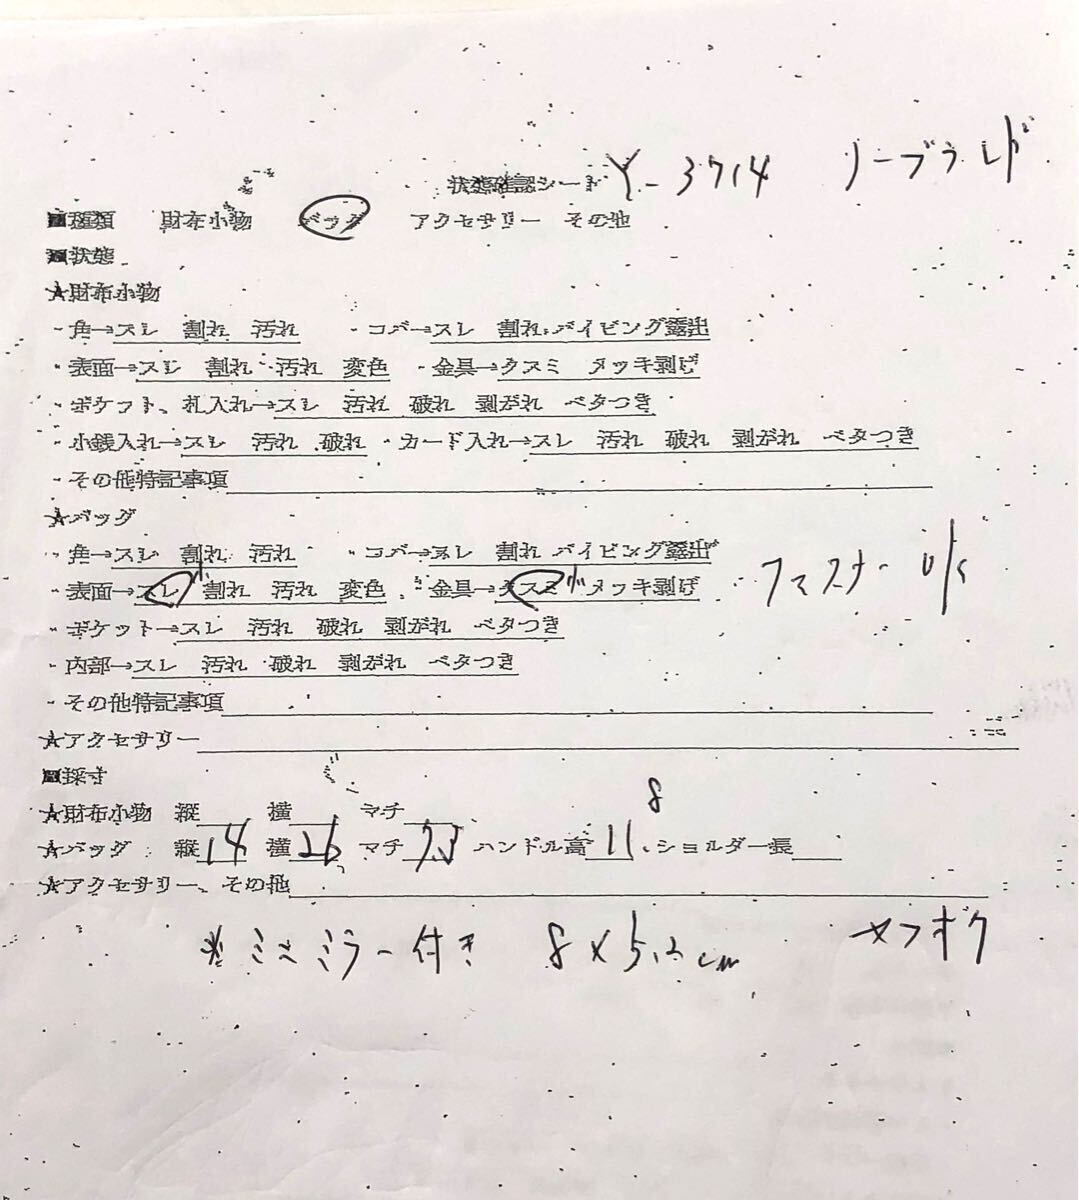 状態確認シート Y-3714 ノーブランド
■種類 財布小物 バッグ アクセサリー その他
■状態
★財布小物
・角→スレ 割れ 汚れ ・コバ→スレ 割れ パイピング露出
・表面→スレ 割れ 汚れ 変色 ・金具→クスミ メッキ剥げ
・ポケット、札入れ→スレ 汚れ 破れ 剥がれ ベタつき
・小銭入れ→スレ 汚れ 破れ ・カード入れ→スレ 汚れ 破れ 剥がれ ベタつき
・その他特記事項
★バッグ
・角→スレ 割れ 汚れ ・コバ→スレ 割れ パイピング露出
・表面→スレ 割れ 汚れ 変色 ・金具→クスミ メッキ剥げ ファスナー
・ポケット→スレ 汚れ 破れ 剥がれ ベタつき
・内部→スレ 汚れ 破れ 剥がれ ベタつき
・その他特記事項
★アクセサリー
■採寸
★財布小物 縦 横 マチ
8
★バッグ 縦14 横26 マチ7.5 ハンドル高11.ショルダー長
★アクセサリー、その他
※ミニミラー付き 8×5.2cm ヤフオク